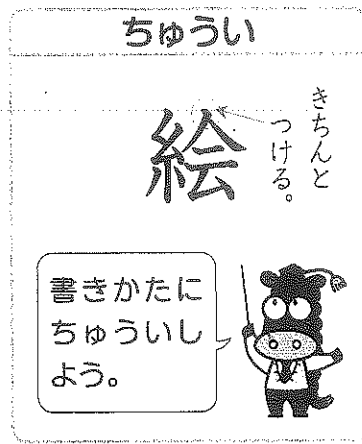 ちゅうい
きちんと
つける。
絵
書きかたに
ちゅういし
よう。